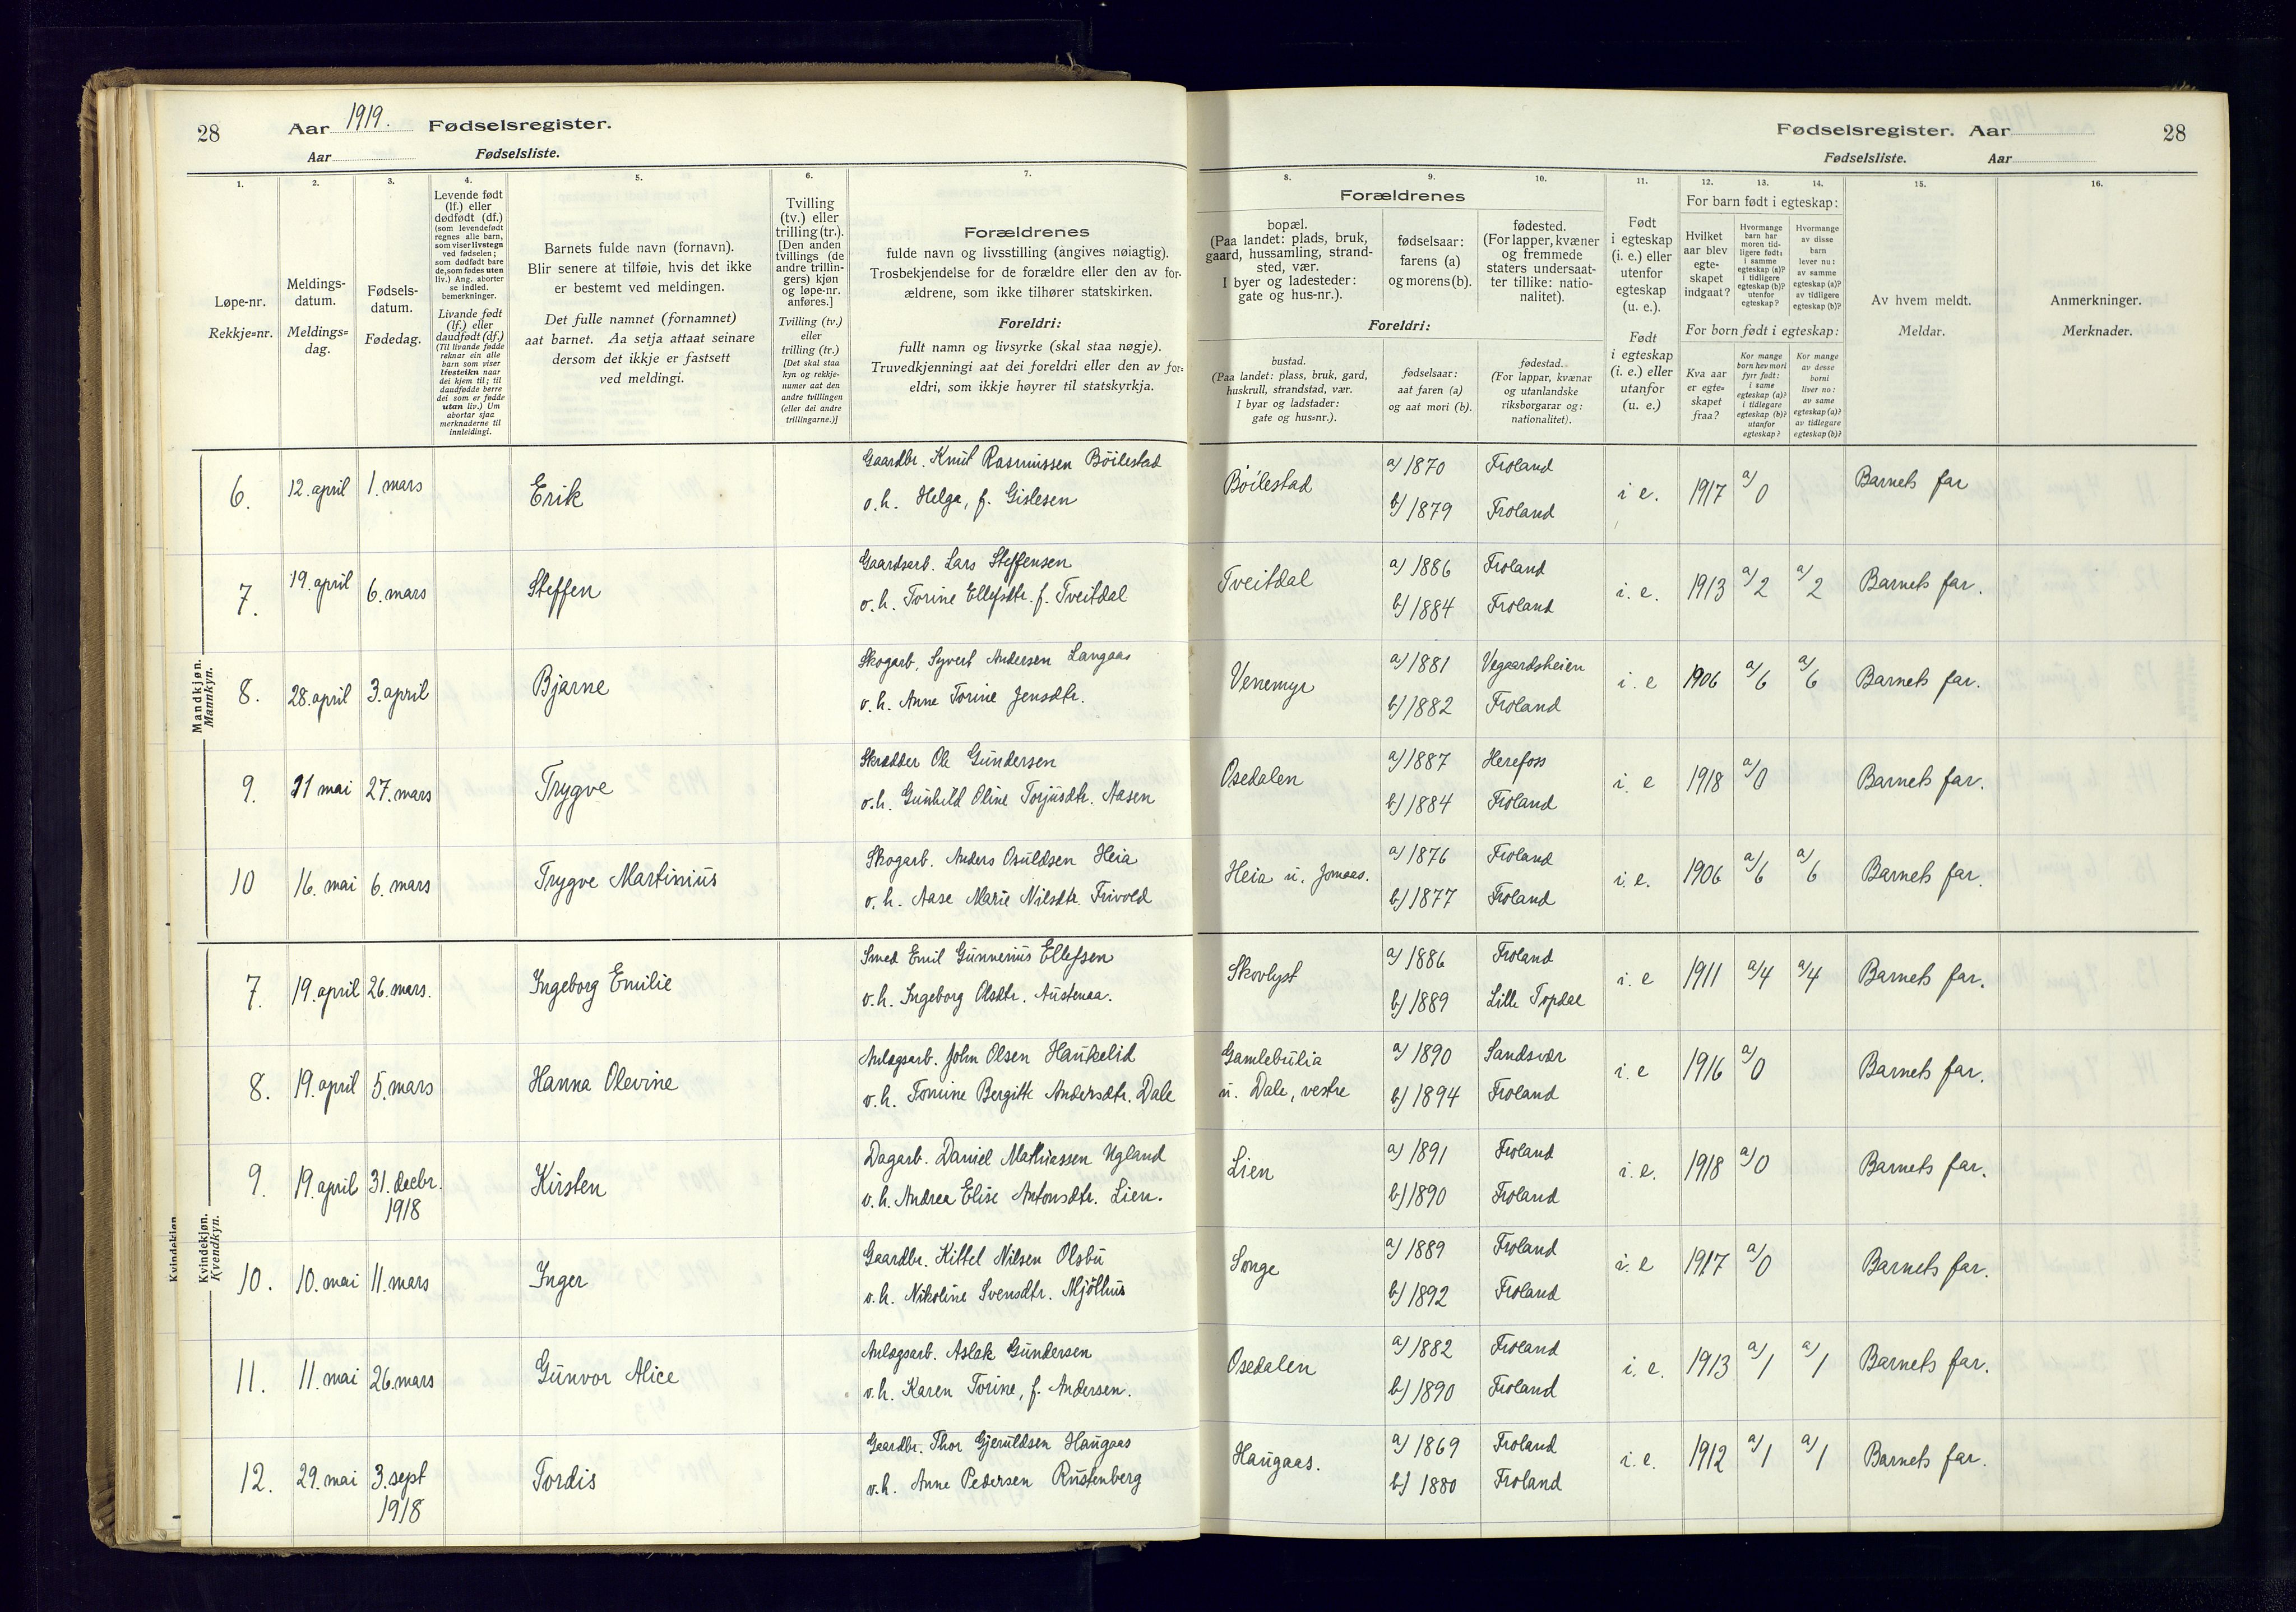 28
Aar 1919. Fødselsregister.
Aar Fødselsliste.
Fødselsregister. Aar
28
Fødselsliste. Aar
1.
Løpe-nr.
Rekkje=nr.
2.
Meldings-
datum.
Meldings=
dag.
3.
Fødsels-
datum.
Fødedag.
4.
Levende født
(lf.) eller
dødfødt (df.)
(som levendefødt
regnes alle barn,
som viser livstegn
ved fødselen;
som dødfødt bare
de, som fødes uten
liv.) Ang. aborter
se indled.
bemerkninger.
Livande født
(lf.) eller
daudfødt (df.)
(Til livande fødde
reknar ein alle
barn som viser
livsteikn naar
dei kjem til; til
daudfødde berre
dei som er fødde
utan liv.) Um
abortar sjaa
merknaderne til
innleidingi.
5.
Barnets fulde navn (fornavn).
Blir senere at tilføie, hvis det ikke
er bestemt ved meldingen.
Det fulle namnet (fornamnet)
aat barnet. Aa setja attaat seinare
dersom det ikkje er fastsett
ved meldingi.
6.
Tvilling
(tv.) eller
trilling (tr.).
[Den anden
tvillings (de
andre trillin-
gers) kjøn
og løpe-nr.
anføres.]
Tvilling (tv.)
eller
trilling (tr.)
[Det skal staa
kyn og rekkje-
numer aat den
andre tvillingen
(eller dei andre
trillingarne.)]
7.
Forældrenes
fulde navn og livsstilling (angives nøiagtig).
Trosbekjendelse for de forældre eller den av for-
ældrene, som ikke tilhører statskirken.
Foreldri:
fullt namn og livsyrke (skal staa nøgje).
Truvedkjenningi aat dei foreldri eller den av for=
eldri, som ikkje høyrer til statskyrkja.
Forældrenes
8.
bopæl.
(Paa landet: plads, bruk,
gaard, hussamling, strand-
sted, vær.
I byer og ladesteder:
gate og hus-nr.).
9.
fødselsaar:
farens (a)
og morens (b).
10.
fødested.
(For lapper, kvæner
og fremmede
staters undersaat-
ter tillike: natio-
nalitet).
Foreldri:
bustad.
(Paa landet: plass, bruk, gard,
huskrull, strandstad, vær.
I byar og ladstader:
gate og hus=nr.).
fødselsaar:
aat faren (a)
og aat mori (b).
fødestad.
(For lappar, kvænar
og utanlandske
riksborgarar og:
nationalitet).
11.
Født
i egteskap
(i. e.) eller
utenfor
egteskap
(u. e.).
Født
i egteskap
(i. e.) eller
utanfor
(u. e.)
For barn født i egteskap:
12.
Hvilket
aar blev
egte-
skapet
indgaat?
13.
Hvormange
barn har
moren tid-
ligere født:
i samme
egteskap (a)?
i tidligere
egteskap (b)?
utenfor
egteskap?
14.
Hvormange
av disse
barn
lever nu:
av samme
egteskap (a)?
av tidligere
egteskap (b)?
For born født i egteskap:
Kva aar
er egte=
skapet
fraa?
Kor mange
born hev mori
fyrr født:
i same
egteskap (a)?
i tidlegare
egteskap (b)?
utanfor
egteskap?
Kor mange
av desse
borni
liver no:
av same
egteskap (a)?
av tidlegare
egteskap (b)?
15.
Av hvem meldt.
Meldar.
16.
Anmerkninger.
Merknader.
Mandkjøn.
Mannkyn.
6. 12. april 1. mars Erik Gaardbr. Knut Rasmussen Böilestad Böilestad a) 1870 Froland i e. 1917 a/0 Barnets far
o. h. Helga, f. Gislesen b) 1879 Froland
7. 19. april 6. mars Steffen Gaardsarb. Lars Steffensen Tveitdal a) 1886 Froland i. e. 1913 a/2 a/2 Barnets far.
o. h. Torine Ellefsdtr. f. Tveitdal b) 1884 Froland
8. 28. april 3. april Bjarne Skogarb. Syvert Andersen Langaas Venemyr a) 1881 Vegaardsheien i. e 1906 a/6 a/6 Barnets far.
o. h. Anne Torine Jensdtr. b) 1882 Froland
9. 11 mai 27. mars Trygve Skrædder Ole Gundersen Osedalen a) 1887 Herefoss i. e 1918 a/0 Barnets far.
o. h. Gunhild Oline Torjusdtr. Aasen b) 1884 Froland
10 16. mai 6. mars Trygve Martinius Skogarb. Anders Osuldsen Heia Heia u. Jomaas. a) 1876 Froland i. e. 1906 a/6 a/6 Barnets far.
o. h. Aase Marie Nilsdtr. Trivold b) 1877 Froland
Kvindekjøn
Kvindekjøn.
Kvendkyn.
7. 19. april 26. mars. Ingeborg Emilie Smed Emil Gunnerius Ellefsen Skovlyst a) 1886 Froland i. e 1911 a/4 a/4 Barnets far.
o. h. Ingeborg Olsdtr. Austenaa. b) 1889 Lille Topdal
8. 19. april 5. mars Hanna Olevine Anlægsarb. John Olsen Haukelid Gamlebulia a) 1890 Sandsvær i. e 1916 a/0 Barnets far.
o. h. Tomine Bergitte Andersdtr. Dale u. Dale, vestre b) 1894 Froland
9. 19. april 31. decbr. Kirsten Dagarb. Daniel Mathiassen Ugland Lien a) 1891 Froland i. e. 1918 a/0 Barnets far.
1918 o. h. Andrea Elise Antonsdtr. Lien. b) 1890 Froland
10. 10. mai 11. mars Inger Gaardbr. Kittel Nilsen Olsbu Songe a) 1889 Froland i. e 1917 a/0 Barnets far.
o. h. Nikoline Svensdtr. Mjölhus b) 1892 Froland
11. 11. mai 26. mars Gunvor Alice Anlægsarb. Aslak Gundersen Osedalen a) 1882 Froland i. e. 1913 a/1 a/1 Barnets far.
o. h. Karen Torine, f. Andersen. b) 1890 Froland
12. 29. mai 3. sept Tordis Gaardbr. Thor Gjeruldsen Haugaas Haugaas. a) 1869 Froland i. e. 1912 a/1 a/1 Barnets far.
1918 o. h. Anne Pedersen Rustenberg b) 1880 Froland